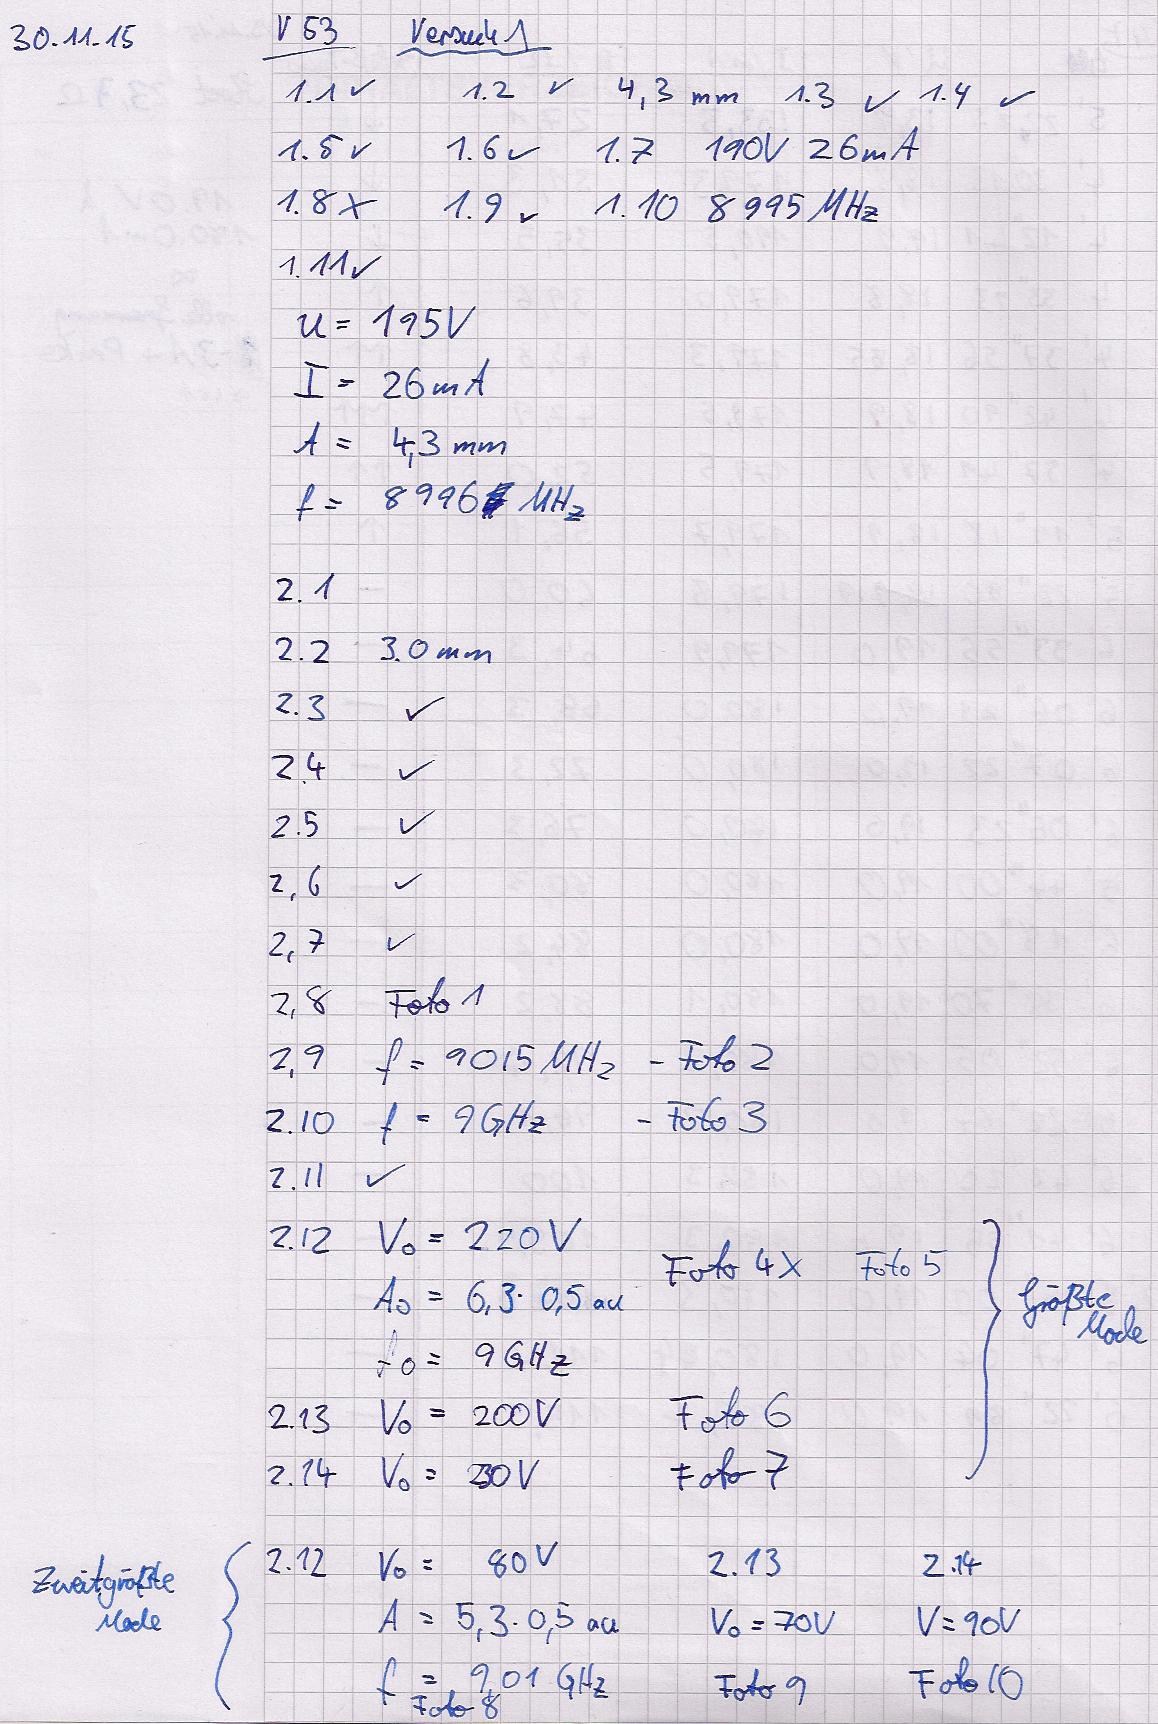 30.11.15 V 53 Versuch 1
1.1 ✓ 1.2 ✓ 4,3 mm 1.3 ✓ 1.4 ✓
1.5 ✓ 1.6 ✓ 1.7 190V 26mA
1.8 X 1.9 ✓ 1.10 8995 MHz
1.11 ✓
U = 195V
I = 26mA
A = 4,3 mm
f = 8996 MHz
2.1
2.2 3.0 mm
2.3 ✓
2.4 ✓
2.5 ✓
2,6 ✓
2,7 ✓
2,8 Foto 1
2,9 f = 9015 MHz - Foto 2
2.10 f = 9 GHz - Foto 3
2.11 ✓
2.12 V₀ = 220V
Foto 4 X Foto 5
A₀ = 6,3 · 0,5 au
f₀ = 9 GHz
Größte
Mode
2.13 V₀ = 200V Foto 6
2.14 V₀ = 230V Foto 7
Zweitgrößte
Mode
2.12 V₀ = 80V 2.13 2.14
A = 5,3 · 0,5 au V₀ = 70V V = 90V
f = 9,01 GHz Foto 9 Foto 10
Foto 8